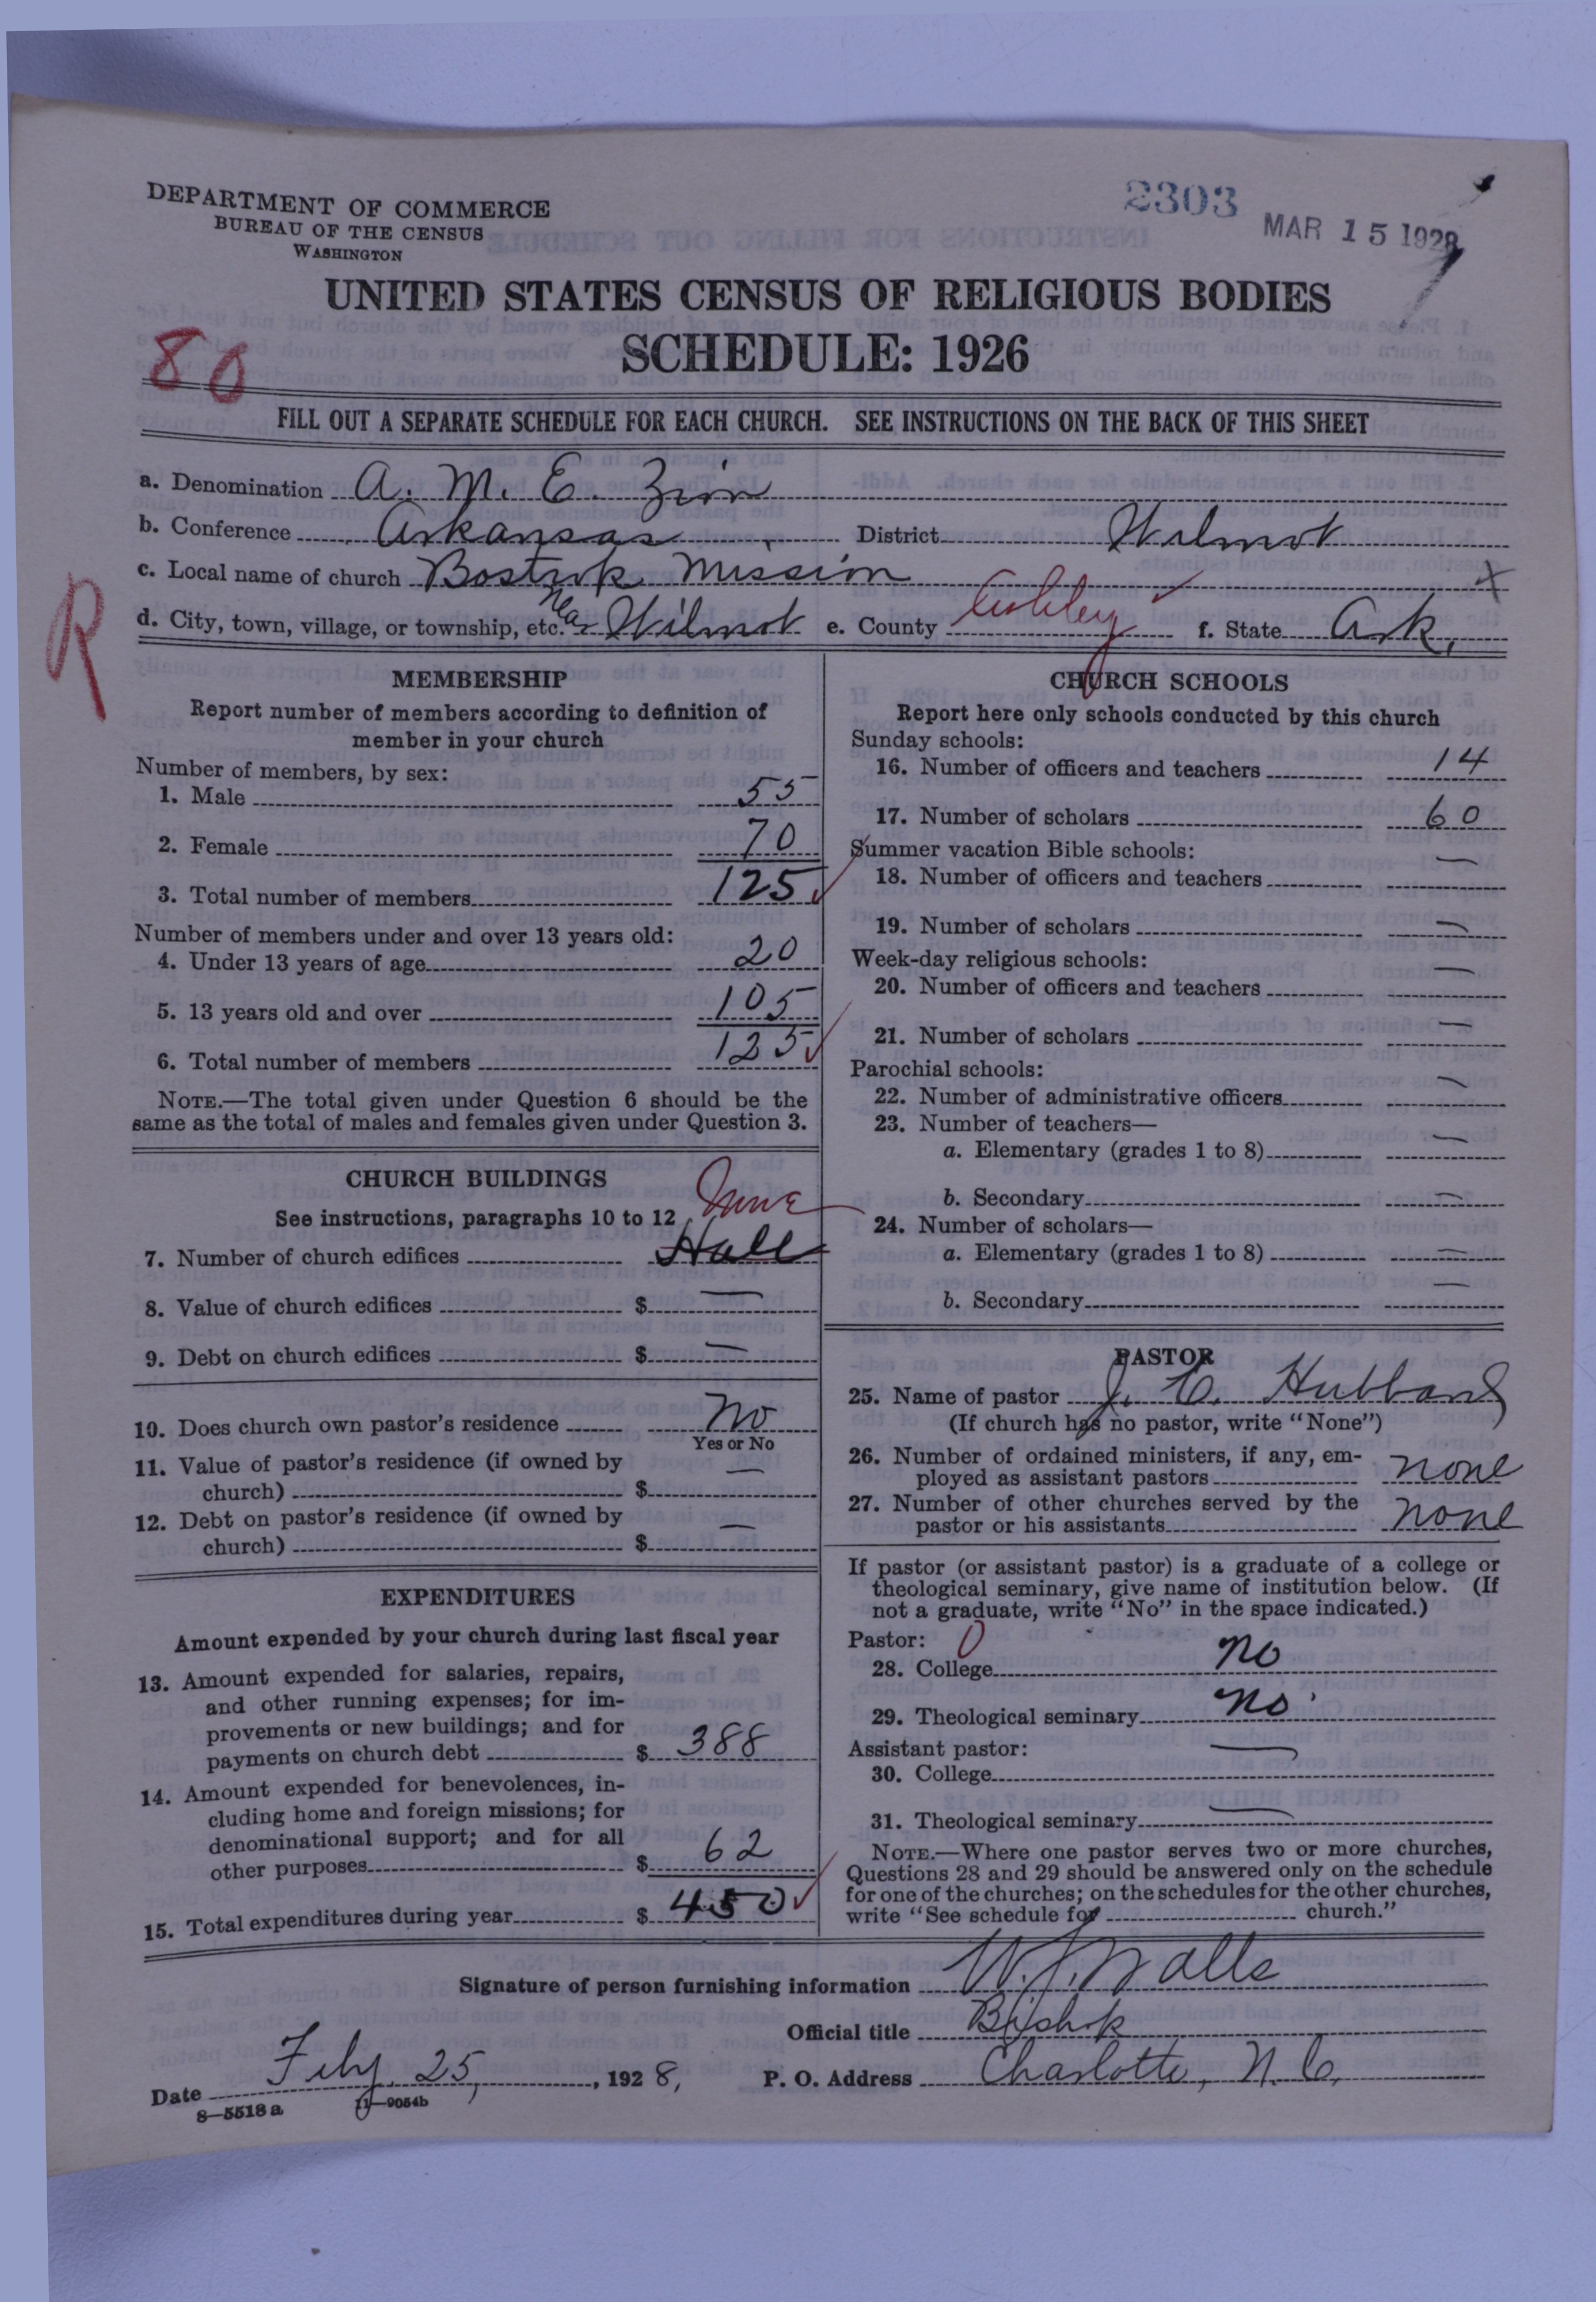 DEPARTMENT OF COMMERCE
BUREAU OF THE CENSUS
WASHINGTON
2303
MAR 15 1928
UNITED STATES CENSUS OF RELIGIOUS BODIES
SCHEDULE: 1926
80
FILL OUT A SEPARATE SCHEDULE FOR EACH CHURCH. SEE INSTRUCTIONS ON THE BACK OF THIS SHEET
a. Denomination A. M. E. Zion
b. Conference Arkansas District Wilmot
c. Local name of church Mission
d. City, town, village, or township, etc. Near Wilmot e. County Ashley f. State Ark.
R
MEMBERSHIP
Report number of members according to definition of
member in your church
Number of members, by sex:
1. Male 55
2. Female 70
3. Total number of members 125
Number of members under and over 13 years old:
4. Under 13 years of age 20
5. 13 years old and over 105
6. Total number of members 125
NOTE.—The total given under Question 6 should be the
same as the total of males and females given under Question 3.
CHURCH BUILDINGS
See instructions, paragraphs 10 to 12
None
7. Number of church edifices Hall
8. Value of church edifices $ —
9. Debt on church edifices $ —
10. Does church own pastor's residence No
Yes or No
11. Value of pastor's residence (if owned by
church) $ —
12. Debt on pastor's residence (if owned by
church) $ —
EXPENDITURES
Amount expended by your church during last fiscal year
13. Amount expended for salaries, repairs,
and other running expenses; for im-
provements or new buildings; and for
payments on church debt $ 388
14. Amount expended for benevolences, in-
cluding home and foreign missions; for
denominational support; and for all
other purposes $ 62
15. Total expenditures during year $ 450
CHURCH SCHOOLS
Report here only schools conducted by this church
Sunday schools:
16. Number of officers and teachers 14
17. Number of scholars 60
Summer vacation Bible schools:
18. Number of officers and teachers —
19. Number of scholars —
Week-day religious schools:
20. Number of officers and teachers —
21. Number of scholars —
Parochial schools:
22. Number of administrative officers —
23. Number of teachers—
a. Elementary (grades 1 to 8) —
b. Secondary —
24. Number of scholars—
a. Elementary (grades 1 to 8) —
b. Secondary —
PASTOR
25. Name of pastor J. C. Hubbard
(If church has no pastor, write "None")
26. Number of ordained ministers, if any, em-
ployed as assistant pastors none
27. Number of other churches served by the
pastor or his assistants none
If pastor (or assistant pastor) is a graduate of a college or
theological seminary, give name of institution below. (If
not a graduate, write "No" in the space indicated.)
Pastor: 0
28. College no
29. Theological seminary no
Assistant pastor:
30. College —
31. Theological seminary —
NOTE.—Where one pastor serves two or more churches,
Questions 28 and 29 should be answered only on the schedule
for one of the churches; on the schedules for the other churches,
write "See schedule for church."
Signature of person furnishing information W. J. Walls
Official title Bishop
Date Feby. 25, 1928, P. O. Address Charlotte, N. C.
8—5518a 11—9054b